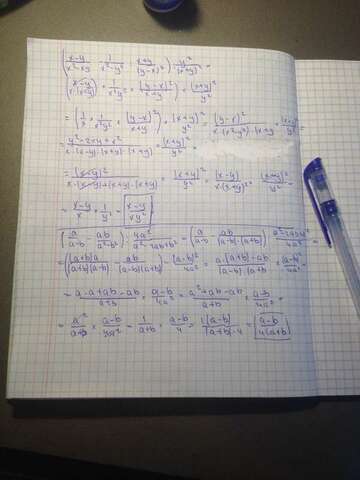 (x-y / x²+xy · 1 / x²-y² : x+y / (y-x)²) : y² / (x+y)² =
(x-y / x·(x+y) · 1 / x²-y² · (y-x)² / x+y) · (x+y)² / y² =
= (1/x · 1 / x²-y² · (y-x)² / x+y) · (x+y)² / y² = (y-x)² / x·(x²-y²)·(x+y) · (x+y)² / y² =
= y²-2xy+x² / x·(x-y)·(x+y)·(x+y) · (x+y)² / y² =
= (x-y)² / x·(x-y)·(x+y)·(x+y) · (x+y)² / y² = (x-y) / x·(x+y)² · (x+y)² / y² =
= x-y / x · 1 / y² = x-y / xy²
(a / a-b - ab / a²-b²) : 4a² / a²-2ab+b² = (a / a-b - ab / (a-b)·(a+b)) · a²-2ab+b² / 4a² =
= ((a+b)a / (a+b)(a-b) - ab / (a-b)(a+b)) · (a-b)² / 4a² = a·(a+b)-ab / (a-b)·(a+b) · (a-b)² / 4a² =
= a·a+ab-ab / a+b · a-b / 4a² = a²+ab-ab / a+b · a-b / 4a² =
= a² / a+b · a-b / 4a² = 1 / a+b · a-b / 4 = 1·(a-b) / (a+b)·4 = a-b / 4(a+b)